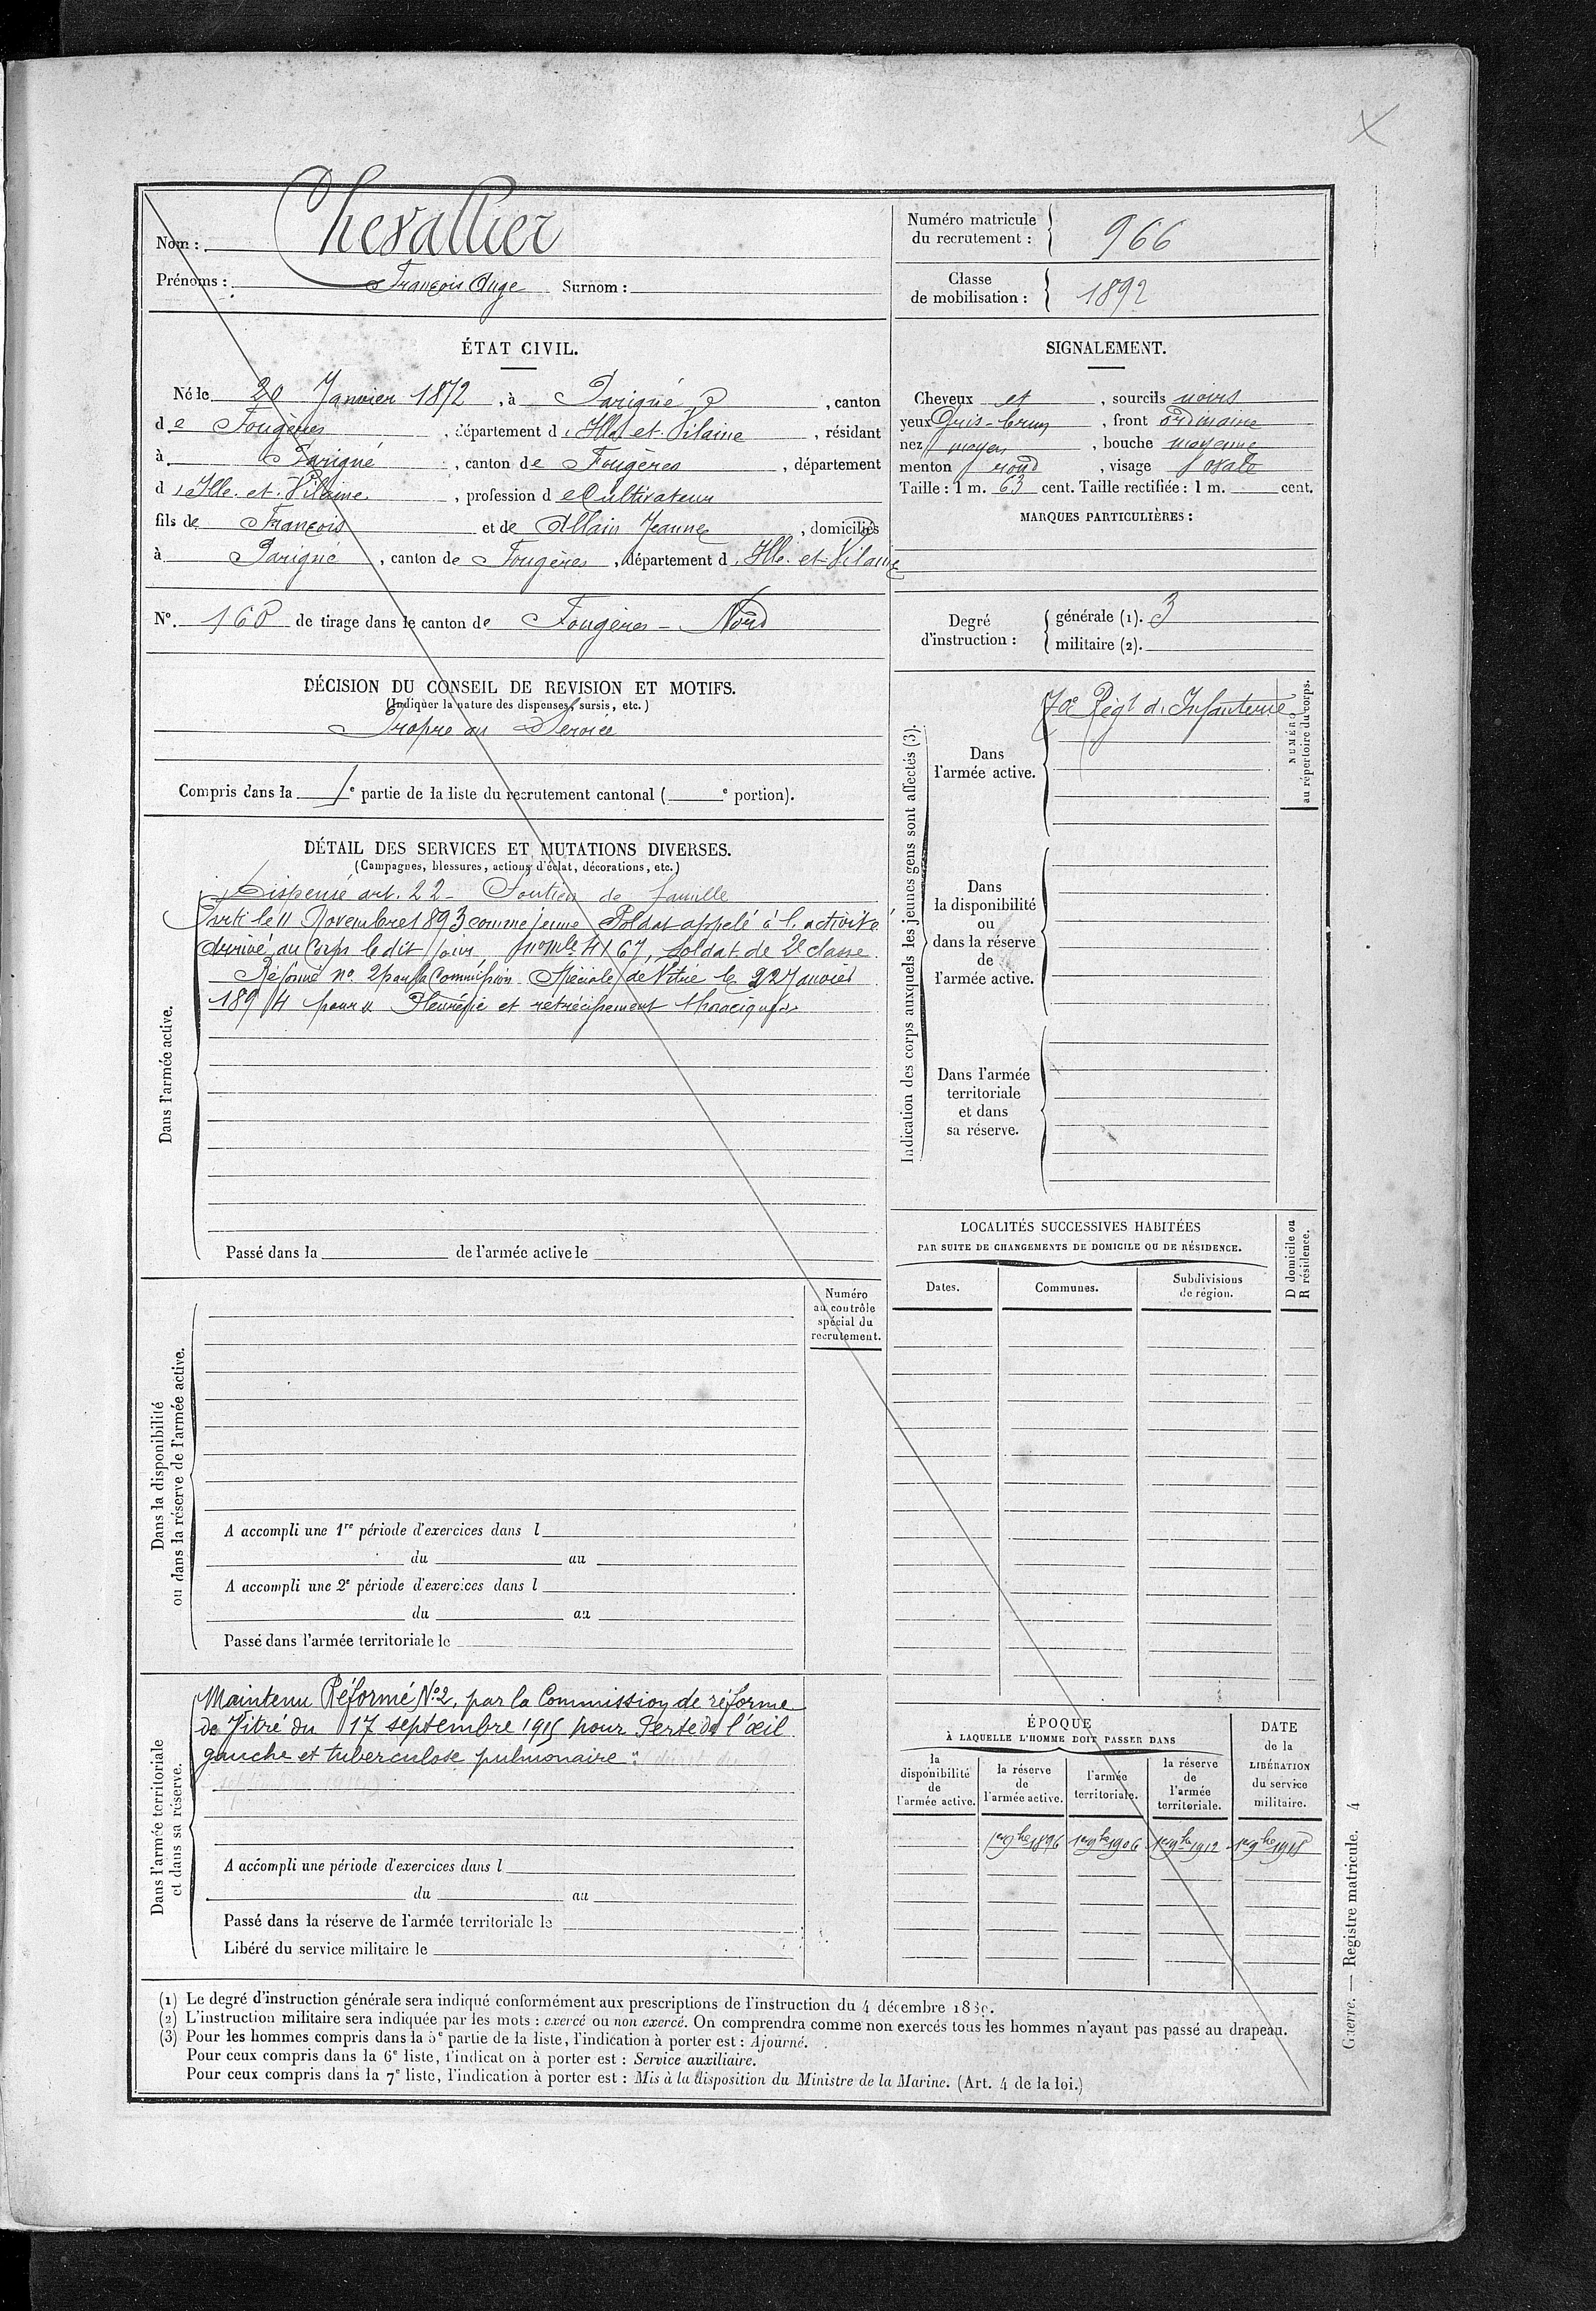 Nom : Chevallier
Prénoms : François Ange Surnom :
Numéro matricule
du recrutement : 966
Classe
de mobilisation : 1892
ÉTAT CIVIL.
Né le 20 Janvier 1872, à Parigné, canton
de Fougères, département d'Ille et Vilaine, résidant
à Parigné, canton de Fougères, département
d'Ille et Vilaine, profession de Cultivateur
fils de François et de Allain Jeanne, domiciliés
à Parigné, canton de Fougères, département d'Ille et Vilaine
N° 160 de tirage dans le canton de Fougères - Nord
SIGNALEMENT.
Cheveux et, sourcils noirs
yeux Gris-brun, front ordinaire
nez moyen, bouche moyenne
menton rond, visage ovale
Taille : 1 m. 63 cent. Taille rectifiée : 1 m. cent.
MARQUES PARTICULIÈRES :
Degré
d'instruction :
générale (1). 3
militaire (2).
DÉCISION DU CONSEIL DE REVISION ET MOTIFS.
(Indiquer la nature des dispenses, sursis, etc.)
Propre au Service
Compris dans la 1e partie de la liste du recrutement cantonal ( e portion).
DÉTAIL DES SERVICES ET MUTATIONS DIVERSES.
(Campagnes, blessures, actions d'éclat, décorations, etc.)
Dans l'armée active.
Dispensé art. 22 - Soutien de famille
Parti le 11 Novembre 1893 comme jeune Soldat appelé à l'activité
Arrivé au Corps le dit jour, n° mle 4167, soldat de 2e classe.
Réformé n° 2 par la Commission Spéciale de Vitré le 22 Janvier
1894 pour « Pleurésie et rétrécissement thoracique »
Passé dans la de l'armée active le
Indication des corps auxquels les jeunes gens sont affectés (3).
NUMÉRO
au répertoire du corps.
Dans
l'armée active.
70e Régt d'Infanterie
Dans
la disponibilité
ou
dans la réserve
de
l'armée active.
Dans l'armée
territoriale
et dans
sa réserve.
LOCALITÉS SUCCESSIVES HABITÉES
PAR SUITE DE CHANGEMENTS DE DOMICILE OU DE RÉSIDENCE.
D domicile ou
R résidence.
Dates.
Communes.
Subdivisions
de région.
Numéro
au contrôle
spécial du
recrutement.
Dans la disponibilité
ou dans la réserve de l'armée active.
A accompli une 1re période d'exercices dans l
du au
A accompli une 2e période d'exercices dans l
du au
Passé dans l'armée territoriale le
Dans l'armée territoriale
et dans sa réserve.
Maintenu Réformé N°2, par la Commission de réforme
de Vitré du 17 septembre 1915 pour Perte de l'œil
gauche et tuberculose pulmonaire".
A accompli une période d'exercices dans l
du au
Passé dans la réserve de l'armée territoriale le
Libéré du service militaire le
ÉPOQUE
À LAQUELLE L'HOMME DOIT PASSER DANS
la
disponibilité
de
l'armée active.
la réserve
de
l'armée active.
l'armée
territoriale.
la réserve
de
l'armée
territoriale.
DATE
de la
LIBÉRATION
du service
militaire.
1er 9bre 1896 1er 9bre 1906 1er 9bre 1912 1er 9bre 1918
(1) Le degré d'instruction générale sera indiqué conformément aux prescriptions de l'instruction du 4 décembre 1889.
(2) L'instruction militaire sera indiquée par les mots : exercé ou non exercé. On comprendra comme non exercés tous les hommes n'ayant pas passé au drapeau.
(3) Pour les hommes compris dans la 5e partie de la liste, l'indication à porter est : Ajourné.
Pour ceux compris dans la 6e liste, l'indication à porter est : Service auxiliaire.
Pour ceux compris dans la 7e liste, l'indication à porter est : Mis à la disposition du Ministre de la Marine. (Art. 4 de la loi.)
Guerre. — Registre matricule. 4